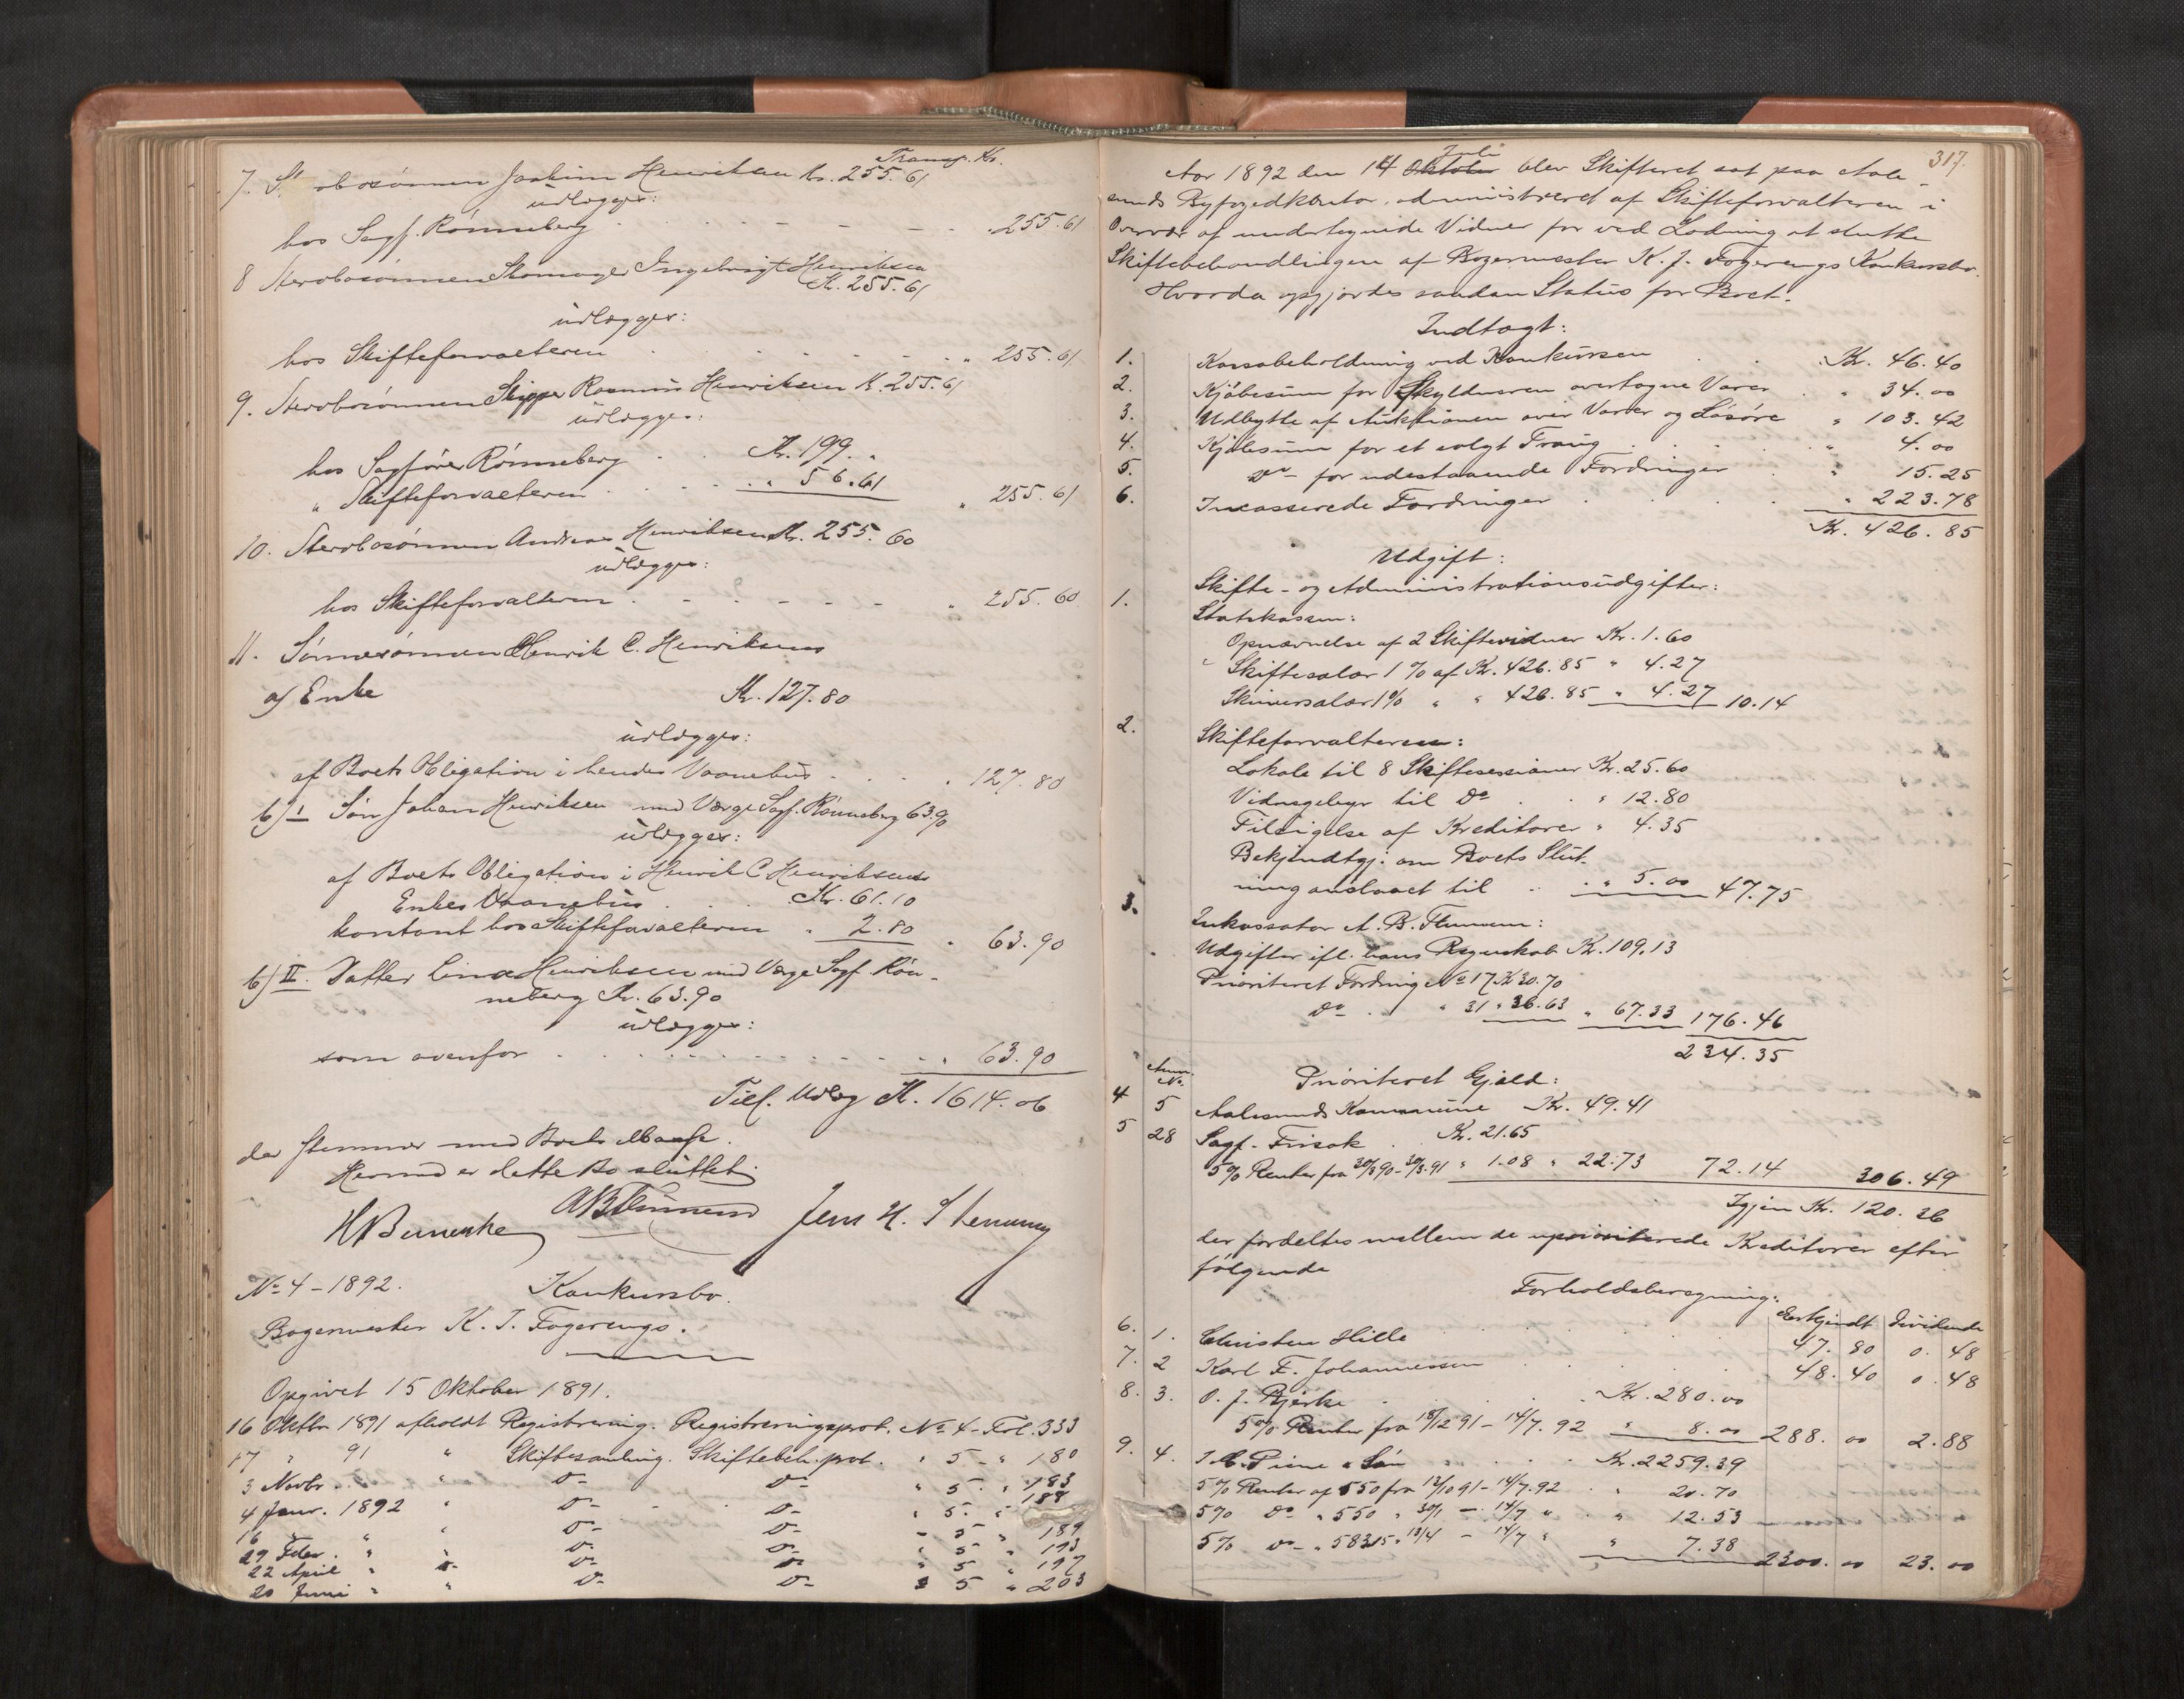 Transp. Kr.
7. St obosönnen Joakim Henriksen Kr. 255.61
udlægges:
hos Sagf. Rönneberg . . - - - - . 255.61
8 Stervbosönnen Skomager Ingebrigt Henriksen
Kr. 255.61
udlægges:
hos Skifteforvalteren . . . . - - . " 255.61
9. Stervbosönnen Skipper Rasmus Henriksen Kr. 255.61
udlægges:
hos Sagförer Rönneberg . . Kr. 199. "
" Skifteforvalteren . . . . " 56.61 " 255.61
10. Stervbosönnen Andreas Henriksen Kr. 255.60
udlægges:
hos Skifteforvalteren . - - - - - " 255.60
11. Sönnesönnen Henrik C. Henriksens
a) Enke Kr. 127.80
udlægges:
af Boets Obligation i hendes Vaanehus . . . . 127.80
b) I Sön Johan Henriksen med Værge Sagf. Rönneberg 63.90
udlægges:
af Boets Obligation i Henrik C Henriksens
Enkes Vaanehus . . . Kr. 61.10
kontant hos Skifteforvalteren " 2.80 " 63.90
b) II. Datter Lina Henriksen med Værge Sagf. Rön-
neberg Kr. 63.90
udlægges:
som ovenfor . . . . . . . . - - " 63.90
Tils. Udlæg Kr. 1614.06
der stemmer med Boets Masse.
Hermed er dette Bo sluttet.
Jens H.
No 4 - 1892. Konkursbo.
Bagermester K. J. Fagerengs.
Opgivet 15 Oktober 1891.
16 Oktbr. 1891 afholdt Registrering. Registreringsprot. No 4 - Fol. 333
17 " 91 " Skiftesamling. Skiftebeh. prot. " 5 - " 180
3 Novbr. " " Do Do " 5. " 183
4 Janr. 1892 " Do Do " 5. " 188
16 " " Do Do " 5 " 189
29 Febr. " " Do Do " 5 " 193
22 April " " Do Do " 5 " 197
20 Juni " " Do Do " 5 " 203
317.
Juli
Aar 1892 den 14 Oktober blev Skifteret sat paa Aale-
sunds Byfogedkontor, administreret af Skifteforvalteren i
Overvær af undertegnede Vidner for ved Lodning at slutte
Skiftebehandlingen af Bagermester K. J. Fagerengs Konkursbo.
Hvorda opgjordes saadan Status for Boet.
Indtægt:
1. Kassabeholdning ved Konkursen . . Kr. 46.40
2. Kjöbesum for Skyldneren overtagne Varer . " 34.00
3. Udbytte af Auktionen over Varer og Lösöre " 103.42
4. Kjöbesum for et solgt Traug . . . . " 4.00
5. Do - for udestaaende Fordringer . " 15.25
6. Incasserede Fordringer . . . . " 223.78
Kr. 426.85
Udgift:
Skifte- og Administrationsudgifter:
1. Statskassen:
Opnævnelse af 2 Skiftevidner Kr. 1.60
Skiftesalær 1 % af Kr. 426.85 " 4.27
Skriversalær 1% " " 426.85 " 4.27 10.14
2. Skifteforvalteren:
Lokale til 8 Skiftesessioner Kr. 25.60
Vidnegebyr til Do . . " 12.80
Tilsigelse af Kreditorer " 4.35
Bekjendtgj. om Boets Slut-
ning anslaaet til . . . " 5.00 47.75
3. Inkassator A. B. Finnsen:
Udgifter ifl. hans Regnskab Kr. 109.13
Prioriteret Fordring No 17 Kr 30.70
Do . " 31 " 36.63 " 67.33 176.46
234.35
Anm. No.
Prioriteret Gjæld:
4 5 Aalesunds Kommune Kr. 49.41
5 28 Sagf. Frisak . . Kr. 21.65
5% Renter fra 30/3 90 - 30/3 91 " 1.08 " 22.73 72.14 306.49
Igjen Kr. 120.36
der fordeltes mellem de uprioriterede Kreditorer efter
fölgende
Forholdsberegning:
Anerkjendt Dividende
6. 1. Christen Hille . . . . . 47.80 0.48
7. 2 Karl F. Johannessen . . . . 48.40 0.48
8. 3. O. J. Bjerke . . . Kr. 280.00
5% Renter fra 18/12 91 - 14/7. 92 " 8.00 288.00 2.88
9. 4. . . . Kr. 2259.39
5% Renter af 550 fra 12/10 91 - 14/7. 92 . " 20.70
5% Do " 550 " 30/1 - 14/7 " . " 12.53
5% Do - " 583.15 " 13/4 - 14/7 " " 7.38
2300.00 23.00